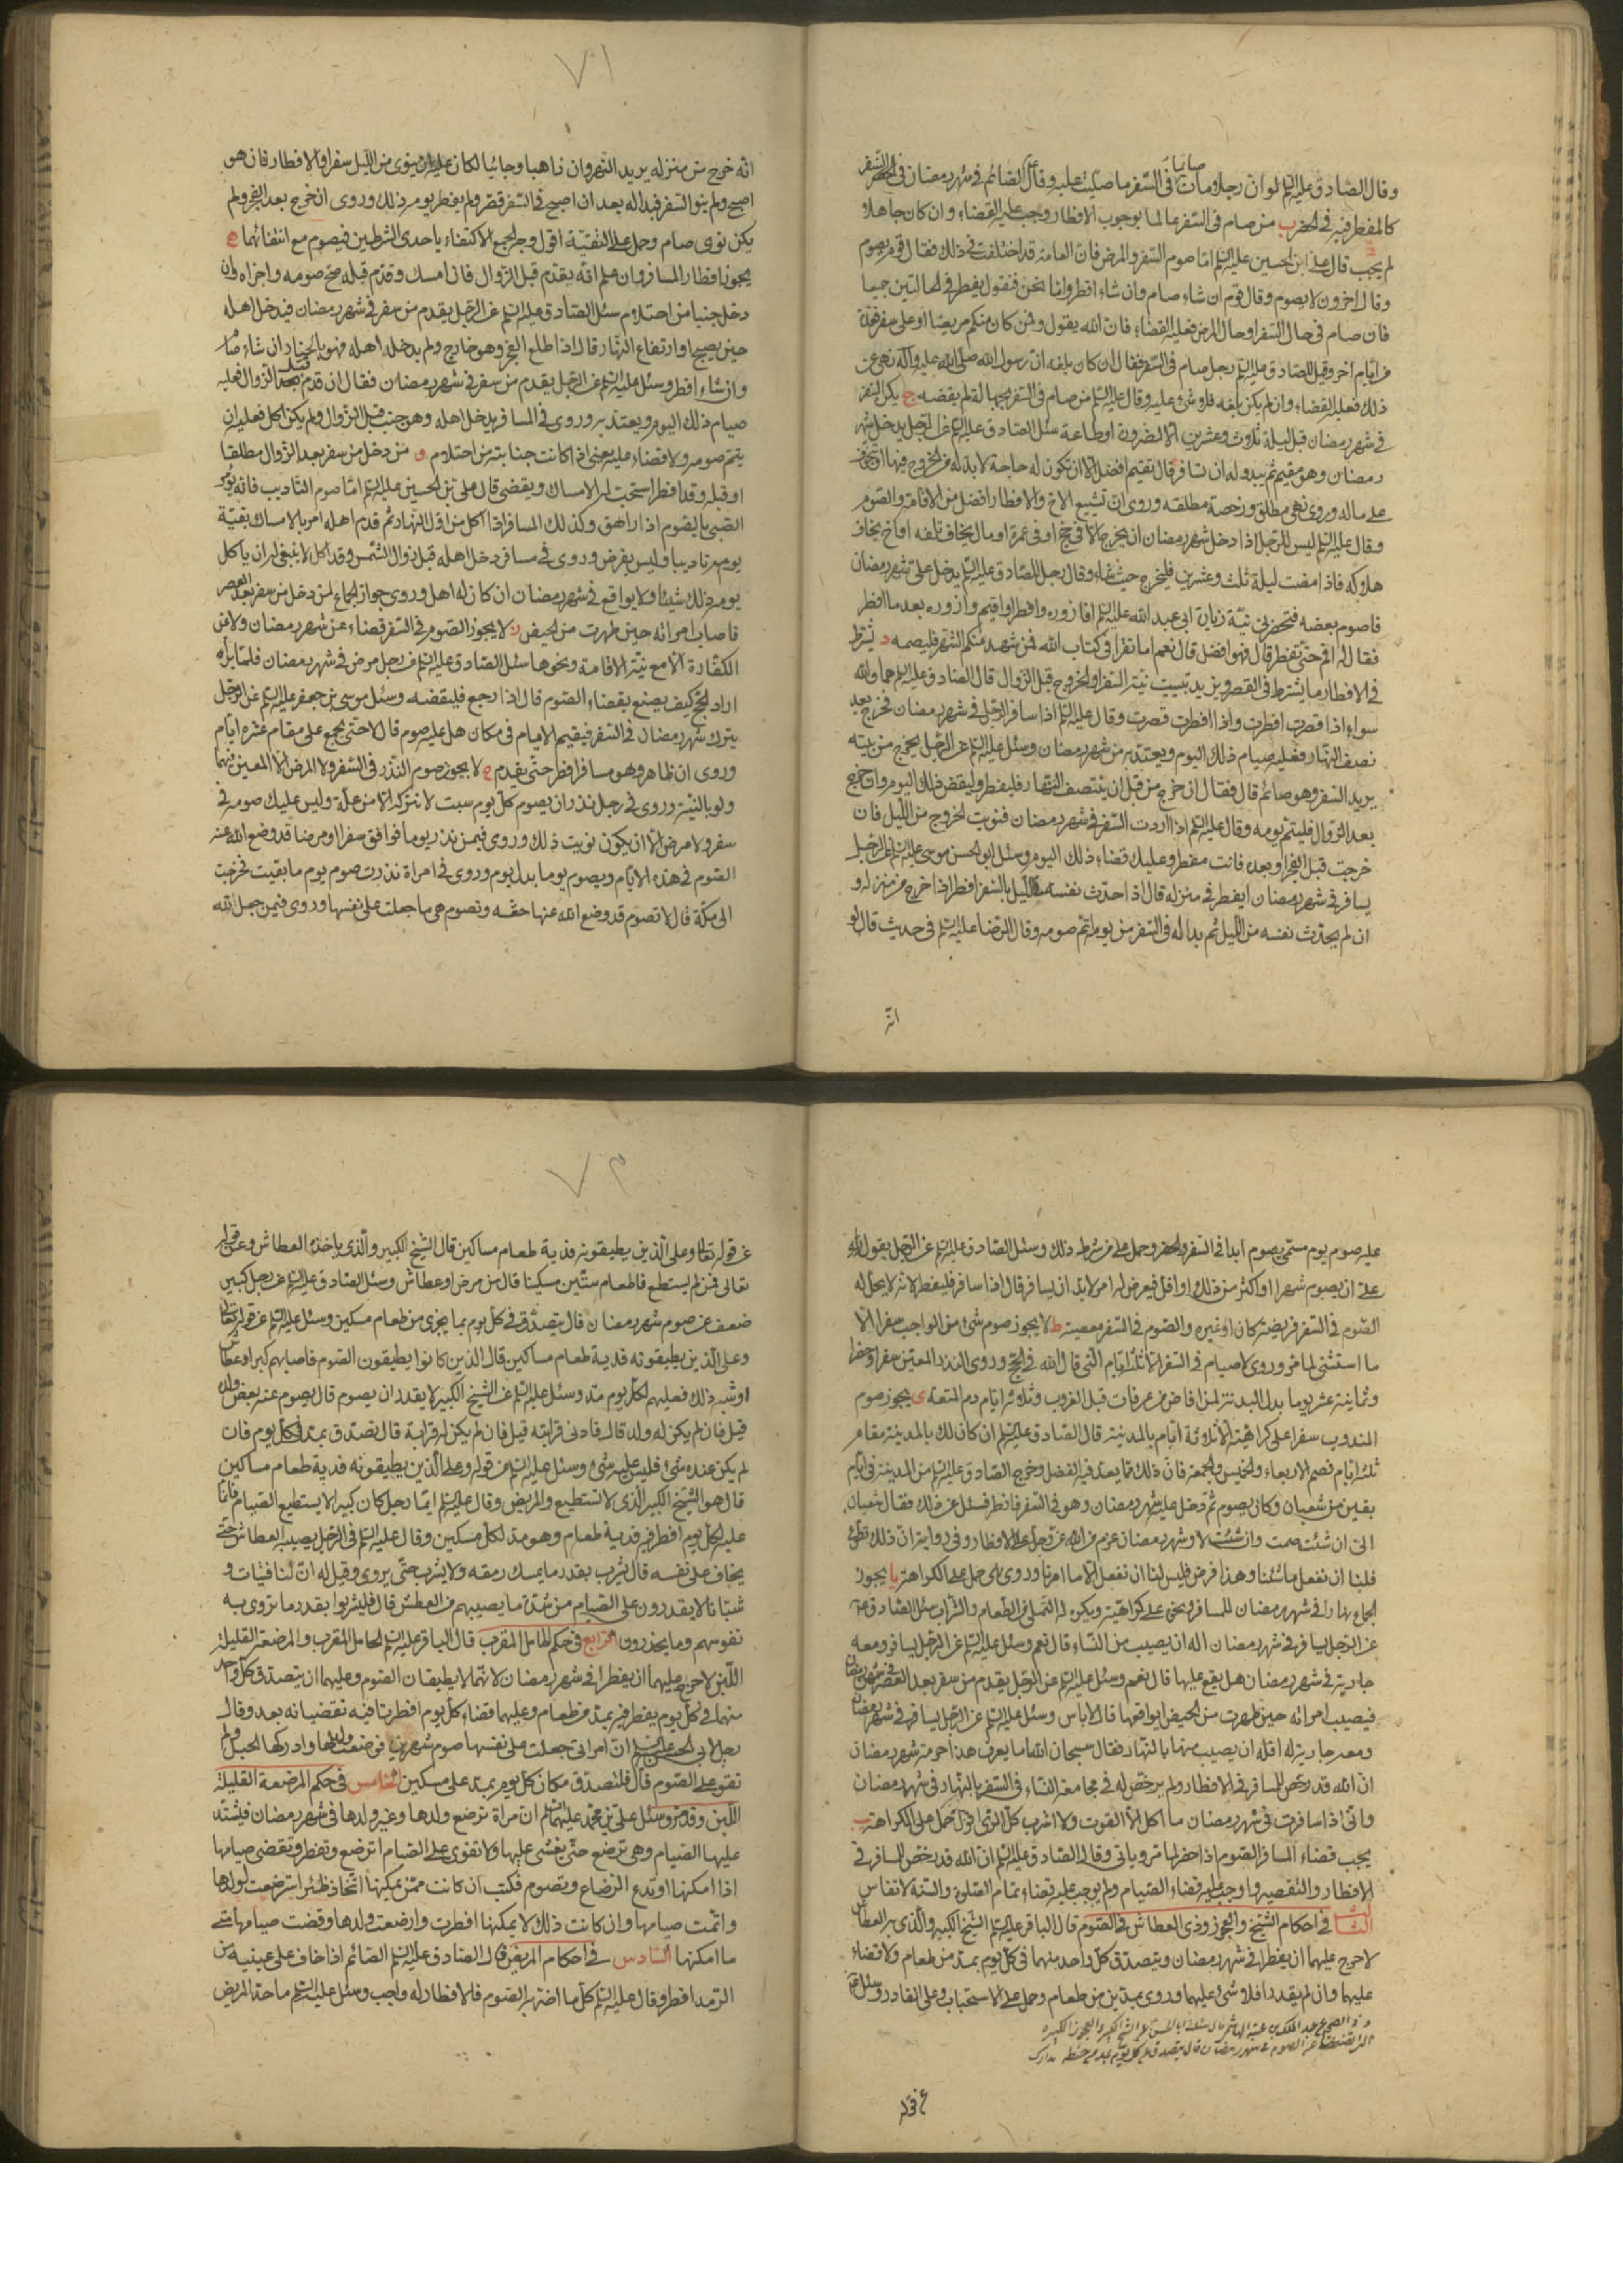 ٧١
وقال الصادق عليه السلم لو ان رجلا ومات صائما فى السفر ما صليت عليه وقال ع الصائم فى شهر رمضان فى السفر
كالمفطر فيه فى الحضر ب من صام فى السفر عالما بوجوب الافطار وجب عليه القضاء وان كان جاهلا
لم يجب قال على ابن الحسين عليه السلم اما صوم السفر والمرض فان العامة قد اختلفت فى ذلك فقال قوم يصوم
وقال اخرون لا يصوم وقال قوم ان شاء صام وان شاء افطر واما نحن فنقول يفطر فى الحالتين جميعا
فان صام فى حال السفر او حال المرض فعليه القضاء فان الله يقول ومن كان منكم مريضا او على سفر فعدة
من ايام اخر وقيل للصادق عليه السلم رجل صام فى السفر فقال ان كان بلغه ان رسول الله صلى الله عليه واله نهى عن
ذلك فعليه القضاء وان لم يكن بلغه فلا شىء عليه وقال عليه السلم من صام فى السفر بجهالة لم يقضه ج يكره السفر
فى شهر رمضان قبل ليلة ثلاث وعشرين الا لضرورة او طاعة سئل الصادق عليه السلم عن الرجل يدخل شهر
رمضان وهو مقيم ثم يبدو له ان يسافر قال يقيم افضل الا ان تكون له حاجة لا بد له من الخروج فيها او يتخوف
على ماله وروى نهى مطلق ورخصة مطلقه وروى ان تشييع الاخ والافطار افضل من الاقامة والصوم
وقال عليه السلم ليس للرجل اذا دخل شهر رمضان ان يخرج الا فى حج او فى عمرة او مال يخاف تلفه او اخ يخاف
هلاكه فاذا مضت ليلة ثلث وعشرين فليخرج حيث شاء وقال رجل للصادق عليه السلم يدخل على شهر رمضان
فاصوم بعضه فتحضرنى نية زيارة ابى عبد الله عليه السلم افازوره وافطر او اقيم وازوره بعد ما افطر
فقال له اقم حتى تفطر قال فهو افضل قال نعم اما تقرا فى كتاب الله فمن شهد منكم الشهر فليصمه د يشترط
فى الافطار ما يشترط فى القصر ويزيد تبييت نية السفر او الخروج قبل الزوال قال الصادق عليه السلم هما والله
سواء اذا قصرت افطرت واذا افطرت قصرت وقال عليه السلم اذا سافر الرجل فى شهر رمضان فخرج بعد
نصف النهار فعليه صيام ذلك اليوم ويعتد به من شهر رمضان وسئل عليه السلم عن الرجل يخرج من بيته
يريد السفر وهو صائم قال فقال ان خرج من قبل ان ينتصف النهار فليفطر وليقض ذلك اليوم وان خرج
بعد الزوال فليتم يومه وقال عليه السلم اذا اردت السفر فى شهر رمضان فنويت الخروج من الليل فان
خرجت قبل الفجر او بعده فانت مفطر وعليك قضاء ذلك اليوم وسئل ابو الحسن موسى عليه السلم عن الرجل
يسافر فى شهر رمضان ايفطر فى منزله قال اذا حدث نفسه بالليل بالسفر افطر اذا خرج من منزله و
ان لم يحدث نفسه من الليل ثم بدا له فى السفر من يومه اتم صومه وقال الرضا عليه السلم فى حديث قال لو
انه
انه خرج من منزله يريد النهروان ذاهبا وجائيا لكان عليه ان ينوى من الليل سفرا والافطار فان هو
اصبح ولم ينو السفر فبدا له بعد ان اصبح فى السفر قصر ولم يفطر يومه ذلك وروى ان خرج بعد الفجر ولم
يكن نوى صام وحمل على التقية اقول وجه الجمع الاكتفاء باحدى الشرطين فيصوم مع انتفائهما ه
يجوز افطار المسافر وان علم انه يقدم قبل الزوال فان امسك وقدم قبله صح صومه واجزاه وان
دخل جنبا من احتلام سئل الصادق عليه السلم عن الرجل يقدم من سفر فى شهر رمضان فيدخل اهله
حين يصبح او ارتفاع النهار قال اذا طلع الفجر وهو خارج ولم يدخل اهله فهو بالخيار ان شاء صام
وان شاء افطر وسئل عليه السلم عن الرجل يقدم من سفر فى شهر رمضان فقال ان قدم قبل الزوال فعليه
صيام ذلك اليوم ويعتد به وروى فى المسافر يدخل اهله وهو جنب قبل الزوال ولم يكن اكل فعليه ان
يتم صومه ولا قضاء عليه يعنى اذا كانت جنابته من احتلام و من دخل من سفر بعد الزوال مطلقا
او قبله وقد افطر استحب له الامساك ويقضى قال على بن الحسين عليه السلم اما صوم التاديب فانه يؤمر
الصبى بالصوم اذا راهق وكذلك المسافر اذا اكل من اول النهار ثم قدم اهله امر بالامساك بقية
يومه تاديبا وليس بفرض وروى فى مسافر دخل اهله قبل زوال الشمس وقد اكل لا ينبغى له ان ياكل
يومه ذلك شيئا ولا يواقع فى شهر رمضان ان كان له اهل وروى جواز الجماع لمن دخل من سفر بعد العصر
فاصاب امراته حين طهرت من الحيض ز لا يجوز الصوم فى السفر قضاء عن شهر رمضان ولا عن
الكفارة الا مع نية الاقامة ونحوها سئل الصادق عليه السلم عن رجل مرض فى شهر رمضان فلما برا
اراد الحج كيف يصنع بقضاء الصوم قال اذا رجع فليقضه وسئل موسى بن جعفر عليه السلم عن الرجل
يترك شهر رمضان فى السفر فيقيم الايام فى مكان هل عليه صوم قال لا حتى يجمع على مقام عشرة ايام
وروى ان ظاهر وهو مسافر افطر حتى يقدم ح لا يجوز صوم النذر فى السفر ولا المرض الا المعين فيهما
ولو بالنية وروى فى رجل نذر ان يصوم كل يوم سبت لا تتركه الا من علة وليس عليك صومه فى
سفر ولا مرض الا ان يكون نويت ذلك وروى فيمن نذر يوما فوافق سفرا او مرضا قد وضع الله عنه
الصوم فى هذه الايام ويصوم يوما بدل يوم وروى فى امراة نذرت صوم يوم ما بقيت فخرجت
الى مكة قال لا تصوم قد وضع الله عنها حقه وتصوم هى ما جعلت على نفسها وروى فيمن جعل لله
٧٢
عليه صوم يوم مسمى يصوم ابدا فى السفر والحضر وحمل على من شرط ذلك وسئل الصادق عليه السلم عن الرجل يقول لله
على ان يصوم شهرا او اكثر من ذلك او اقل فيعرض له امر لا بد ان يسافر قال اذا سافر فليفطر لانه لا يحل له
الصوم فى السفر فريضة كان او غيره والصوم فى السفر معصية ط لا يجوز صوم شىء من الواجب سفرا الا
ما استثنى لما مر وروى لا صيام فى السفر الا ثلثة ايام التى قال الله فى الحج وروى النذر المعين سفرا وحضرا
وثمانية عشر يوما بدل البدنة لمن افاض من عرفات قبل الغروب وثلاثة ايام دم المتعة ى يجوز صوم
المندوب سفرا على كراهية الا ثلاثة ايام بالمدينة قال الصادق عليه السلم ان كان لك بالمدينة مقام
ثلثة ايام فصم الاربعاء والخميس والجمعة فان ذلك مما يعد فيه الفضل وخرج الصادق عليه السلم من المدينة فى ايام
بقين من شعبان وكان يصوم ثم دخل عليه شهر رمضان وهو فى السفر فافطر فسئل عن ذلك فقال شعبان
الى ان شئت صمت وان شئت لا وشهر رمضان عزم من الله عز وجل على الافطار وفى رواية ان ذلك تطوع
فلنا ان نفعل ما شئنا وهذا فرض فليس لنا ان نفعل الا ما امرنا وروى نهى حمل على الكراهة يا يجوز
الجماع نهارا فى شهر رمضان للمسافر ونحوه على كراهية ويكره له التملى من الطعام والشراب سئل الصادق ع
عن الرجل يسافر فى شهر رمضان اله ان يصيب من النساء قال نعم وسئل عليه السلم عن الرجل يسافر ومعه
جارية فى شهر رمضان هل يقع عليها قال نعم وسئل عليه السلم عن الرجل يقدم من سفر بعد العصر فى شهر رمضان
فيصيب امراته حين طهرت من الحيض ايواقعها قال لا باس وسئل عليه السلم عن الرجل يسافر فى شهر رمضان
ومعه جارية له افله ان يصيب منها بالنهار فقال سبحان الله اما يعرف هذا حرمة شهر رمضان
ان الله قد رخص للمسافر فى الافطار ولم يرخص له فى مجامعة النساء فى السفر بالنهار فى شهر رمضان
وانى اذا سافرت فى شهر رمضان ما اكل الا القوت ولا اشرب كل الرى اقول حمل على الكراهة يب
يجب قضاء المسافر الصوم اذا حضر لما مر وياتى وقال الصادق عليه السلم ان الله قد رخص للمسافر فى
الافطار والتقصير واوجب عليه قضاء الصيام ولم يوجب عليه قضاء تمام الصلوة والسنة لا تقاس
الثالث فى احكام الشيخ والعجوز وذى العطاش فى الصوم قال الباقر عليه السلم الشيخ الكبير والذى به العطاش
لا حرج عليهما ان يفطرا فى شهر رمضان ويتصدق كل واحد منهما فى كل يوم بمد من طعام ولا قضاء
عليهما وان لم يقدرا فلا شىء عليهما وروى بمدين من طعام وحمل على الاستحباب وعلى القادر وسئل ع
و فى الصحيح عن عبد الملك بن عتبة الهاشمى قال سئلت ابا الحسن ع عن الشيخ الكبير والعجوز الكبيره
التى تضعف عن الصوم فى شهر رمضان قال يتصدق فى كل يوم بمد من حنطه مدارك
عن قوله
عن قوله تعالى وعلى الذين يطيقونه فدية طعام مساكين قال الشيخ الكبير والذى ياخذه العطاش وعن قوله
تعالى فمن لم يستطع فاطعام ستين مسكينا قال من مرض او عطاش وسئل الصادق عليه السلم عن رجل كبير
ضعف عن صوم شهر رمضان قال يتصدق فى كل يوم بما يجزى من طعام مسكين وسئل عليه السلم عن قوله تعالى
وعلى الذين يطيقونه فدية طعام مساكين قال الذين كانوا يطيقون الصوم فاصابهم كبر او عطاش
او شبه ذلك فعليهم لكل يوم مد وسئل عليه السلم عن الشيخ الكبير لا يقدر ان يصوم قال يصوم عنه بعض ولده
قيل فان لم يكن له ولد قال فادنى قرابته قيل فان لم يكن له قرابة قال تصدق بمد فى كل يوم فان
لم يكن عنده شىء فليس عليه شىء وسئل عليه السلم عن قوله وعلى الذين يطيقونه فدية طعام مساكين
قال هو الشيخ الكبير الذى لا يستطيع والمريض وقال عليه السلم ايما رجل كان كبيرا لا يستطيع الصيام فانما
عليه لكل يوم افطر فيه فدية طعام وهو مد لكل مسكين وقال عليه السلم فى الرجل يصيبه العطاش حتى
يخاف على نفسه قال يشرب بقدر ما يمسك رمقه ولا يشرب حتى يروى وقيل له ان لنا فتيات و
شبانا لا يقدرون على الصيام من شدة ما يصيبهم من العطش قال فليشربوا بقدر ما تروى به
نفوسهم وما يحذرون الرابع فى حكم الحامل المقرب قال الباقر عليه السلم الحامل المقرب والمرضعة القليلة
اللبن لا حرج عليهما ان يفطرا فى شهر رمضان لانهما لا يطيقان الصوم وعليهما ان يتصدق كل واحد
منهما فى كل يوم يفطر فيه بمد من طعام وعليهما قضاء كل يوم افطرتا فيه تقضيانه بعد وقال
رجل لابى الحسن عليه السلم ان امراتى جعلت على نفسها صوم شهرين فوضعت ولدها وادركها الحبل ولم
تقو على الصوم قال فلتصدق مكان كل يوم بمد على مسكين الخامس فى حكم المرضعة القليلة
اللبن وقد مر وسئل على بن محمد عليهما السلم ان مراة ترضع ولدها وغير ولدها فى شهر رمضان فيشتد
عليها الصيام وهى ترضع حتى يغشى عليها ولا تقوى على الصيام اترضع وتفطر وتقضى صيامها
اذا امكنها او تدع الرضاع وتصوم فكتب ان كانت ممن يمكنها اتخاذ ظئر استرضعت لولدها
واتمت صيامها وان كانت ذلك لا يمكنها افطرت وارضعت ولدها وقضت صيامها متى
ما امكنها السادس فى احكام المريض قال الصادق عليه السلم الصائم اذا خاف على عينيه من
الرمد افطر وقال عليه السلم كل ما اضر به الصوم فالافطار له واجب وسئل عليه السلم ما حد المريض